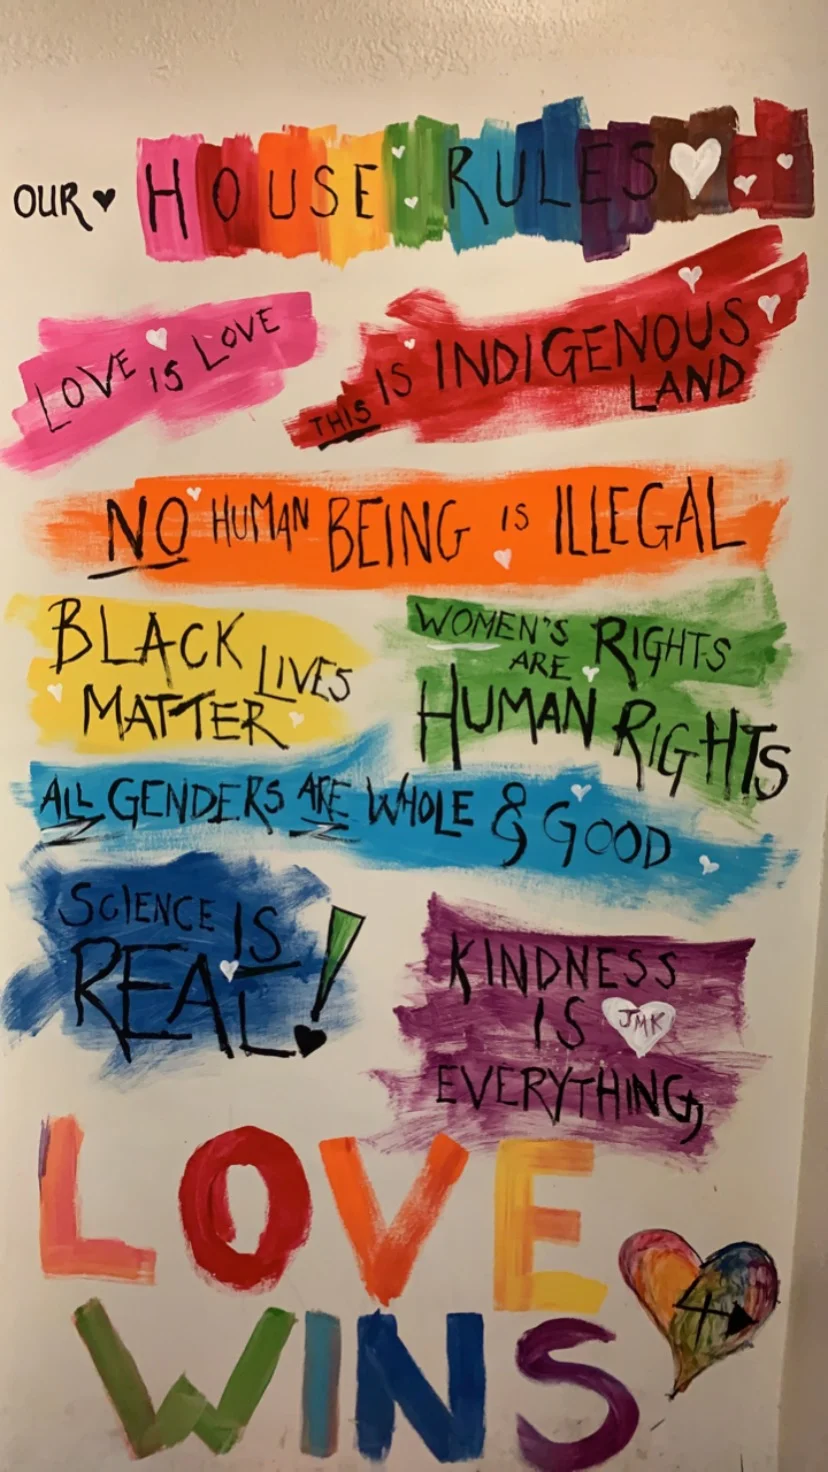 OUR HOUSE RULES
LOVE IS LOVE
THIS IS INDIGENOUS
LAND
NO HUMAN BEING IS ILLEGAL
BLACK LIVES
MATTER
WOMEN'S RIGHTS
ARE
HUMAN RIGHTS
ALL GENDERS ARE WHOLE & GOOD
SCIENCE IS
REAL!
KINDNESS
IS JMK
EVERYTHING,
LOVE
WINS